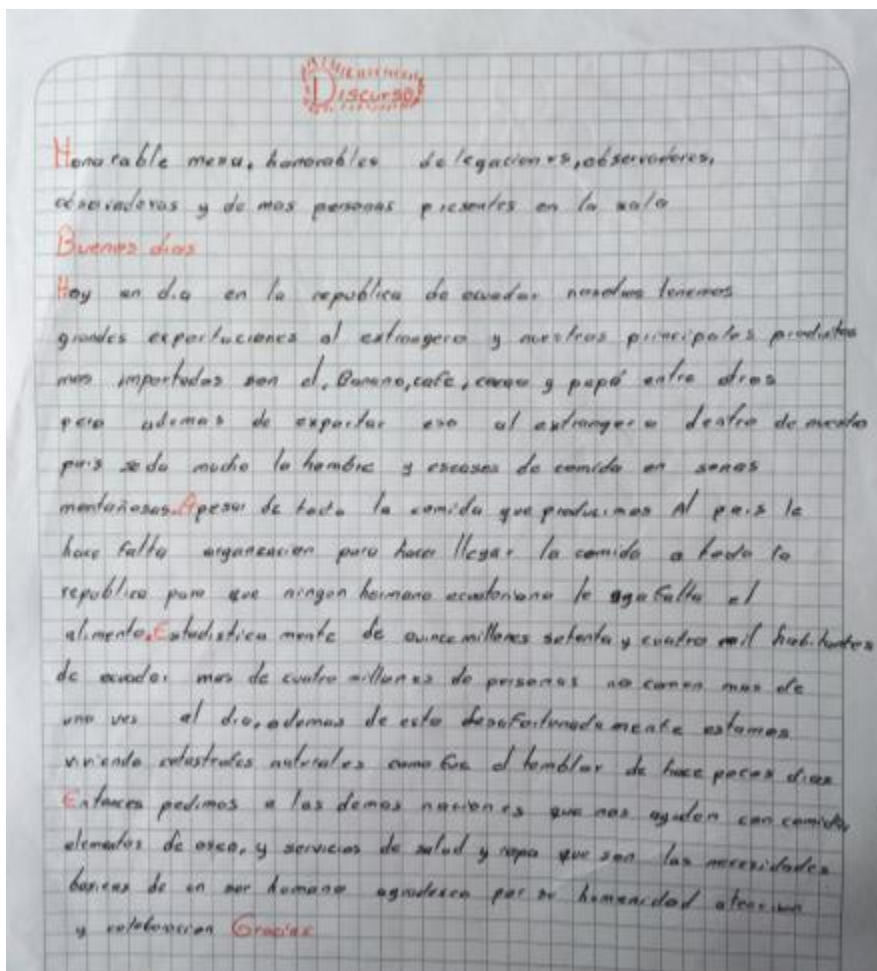 Discurso
Honorable mesa, honorables delegaciones, observadores,
observadoras y de mas personas presentes en la sala
Buenos dias
Hoy en dia en la republica de ecuador nosotros tenemos
grandes exportaciones al extrangero y nuestros principales productos
mas importados son el, Banano, cafe, cacao y papá entre otros
pero ademas de exportar eso al extrangero dentro de nuestro
pais se da mucho la hambre y escases de comida en sonas
montañosas. Apesar de toda la comida que producimos Al pais le
hace falta organizacion para hacer llegar la comida a toda la
republica para que ningon hermano ecuatoriano le aga falta el
alimento. Estadistica mente de quince millones setenta y cuatro mil habitantes
de ecuador mas de cuatro millones de personas no comen mas de
una ves al dia, ademas de esto desafortunada mente estamos
viviendo catastrofes naturales como fue el temblor de hace pocos dias
Entonces pedimos a las demas naciones que nos ayuden con comida,
elementos de aseo, y servicios de salud y ropa que son las necesidades
basicas de un ser humano agradesco por su humanidad atencion
y colaboracion Gracias